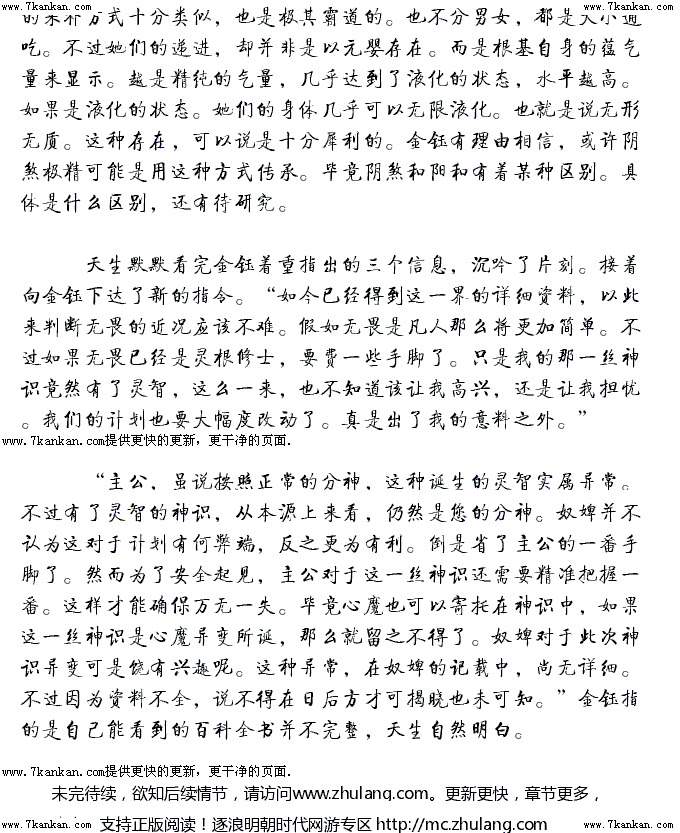 www.7kankan.com www.7kankan.com
的采补方式十分类似，也是极其霸道的。也不分男女，都是大小通
吃。不过她们的递进，却并非是以元婴存在。而是根基自身的蕴气
量来显示。越是精纯的气量，几乎达到了液化的状态，水平越高。
如果是液化的状态。她们的身体几乎可以无限液化。也就是说无形
无质。这种存在，可以说是十分犀利的。金钰有理由相信，或许阴
煞极精可能是用这种方式传承。毕竟阴煞和阳和有着某种区别。具
体是什么区别，还有待研究。
天生默默看完金钰着重指出的三个信息，沉吟了片刻。接着
向金钰下达了新的指令。“如今已经得到这一界的详细资料，以此
来判断无畏的近况应该不难。假如无畏是凡人那么将更加简单。不
过如果无畏已经是灵根修士，要费一些手脚了。只是我的那一丝神
识竟然有了灵智，这么一来，也不知道该让我高兴，还是让我担忧
。我们的计划也要大幅度改动了。真是出了我的意料之外。”
www.7kankan.com提供更快的更新，更干净的页面.
“主公，虽说按照正常的分神，这种诞生的灵智实属异常。
不过有了灵智的神识，从本源上来看，仍然是您的分神。奴婢并不
认为这对于计划有何弊端，反之更为有利。倒是省了主公的一番手
脚了。然而为了安全起见，主公对于这一丝神识还需要精准把握一
番。这样才能确保万无一失。毕竟心魔也可以寄托在神识中，如果
这一丝神识是心魔异变所诞，那么就留之不得了。奴婢对于此次神
识异变可是饶有兴趣呢。这种异常，在奴婢的记载中，尚无详细。
不过因为资料不全，说不得在日后方才可揭晓也未可知。”金钰指
的是自己能看到的百科全书并不完整，天生自然明白。
www.7kankan.com提供更快的更新，更干净的页面.
未完待续，欲知后续情节，请访问www.zhulang.com。更新更快，章节更多，
www.7kankan.com 支持正版阅读！逐浪明朝时代网游专区 http://mc.zhulang.com/ www.7kankan.com